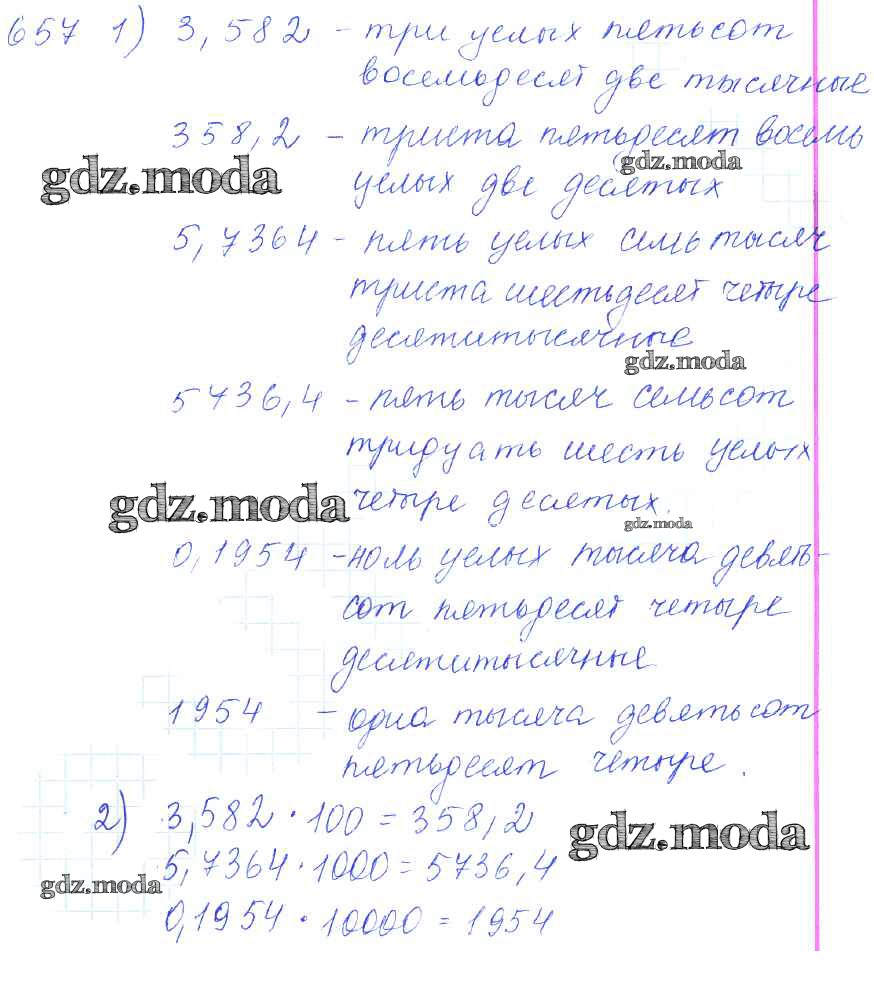 657 1) 3,582 - три целых пятьсот
восемьдесят две тысячные
358,2 - триста пятьдесят восемь
gdz.moda
gdz.moda
целых две десятых
5,7364 - пять целых семь тысяч
триста шестьдесят четыре
десятитысячные
gdz.moda
5736,4 - пять тысяч семьсот
тридцать шесть целых
gdz.moda
четыре десятых.
gdz.moda
0,1954 - ноль целых тысяча девять-
сот пятьдесят четыре
десятитысячные
1954 - одна тысяча девятьсот
пятьдесят четыре.
2) 3,582 · 100 = 358,2
gdz.moda
5,7364 · 1000 = 5736,4
gdz.moda
0,1954 · 10000 = 1954